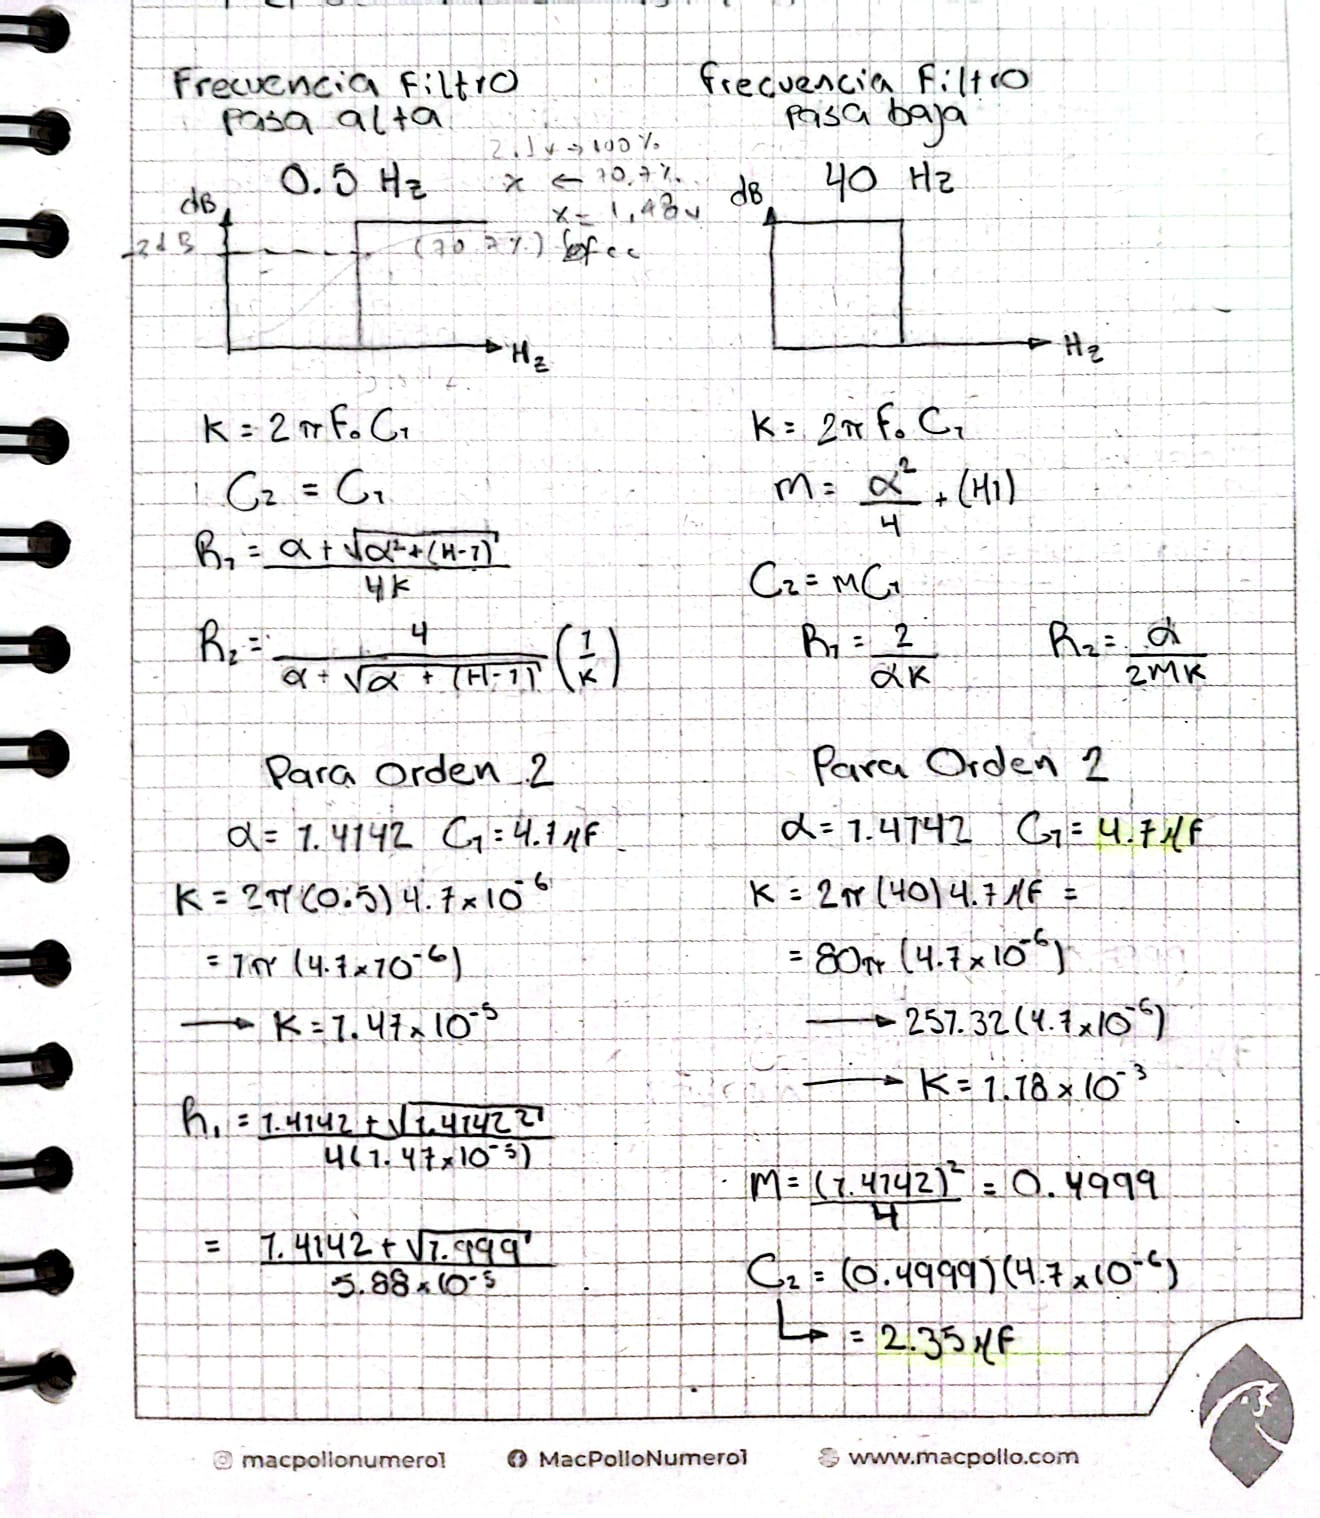 Frecuencia Filtro
pasa alta
0.5 Hz
2.1v → 100%
x ← 70.7%
x = 1,48v
dB
-3dB
(70.7%)
Hz
K = 2πFoC1
C2 = C1
R1 = α + √α² + (H-1) / 4K
R2 = 4 / α + √α + (H-1) (1/K)
Para Orden 2
α = 1.4142 C1 = 4.7μF
K = 2π(0.5)4.7×10^-6
= 1π(4.7×10^-6)
→ K = 1.47×10^-5
R1 = 1.4142 + √1.4142² / 4(1.47×10^-5)
= 1.4142 + √1.999 / 5.88×10^-5
Frecuencia Filtro
pasa baja
40 Hz
dB
Hz
K = 2πFoC1
M = α²/4 + (H1)
C2 = MC1
R1 = 2/αK R2 = α/2MK
Para Orden 2
α = 1.4142 C1 = 4.7μF
K = 2π(40)4.7μF =
= 80π(4.7×10^-6)
→ 251.32(4.7×10^-6)
→ K = 1.18×10^-3
M = (1.4142)²/4 = 0.4999
C2 = (0.4999)(4.7×10^-6)
↳ = 2.35μF
macpollonumero1 MacPolloNumero1 www.macpollo.com